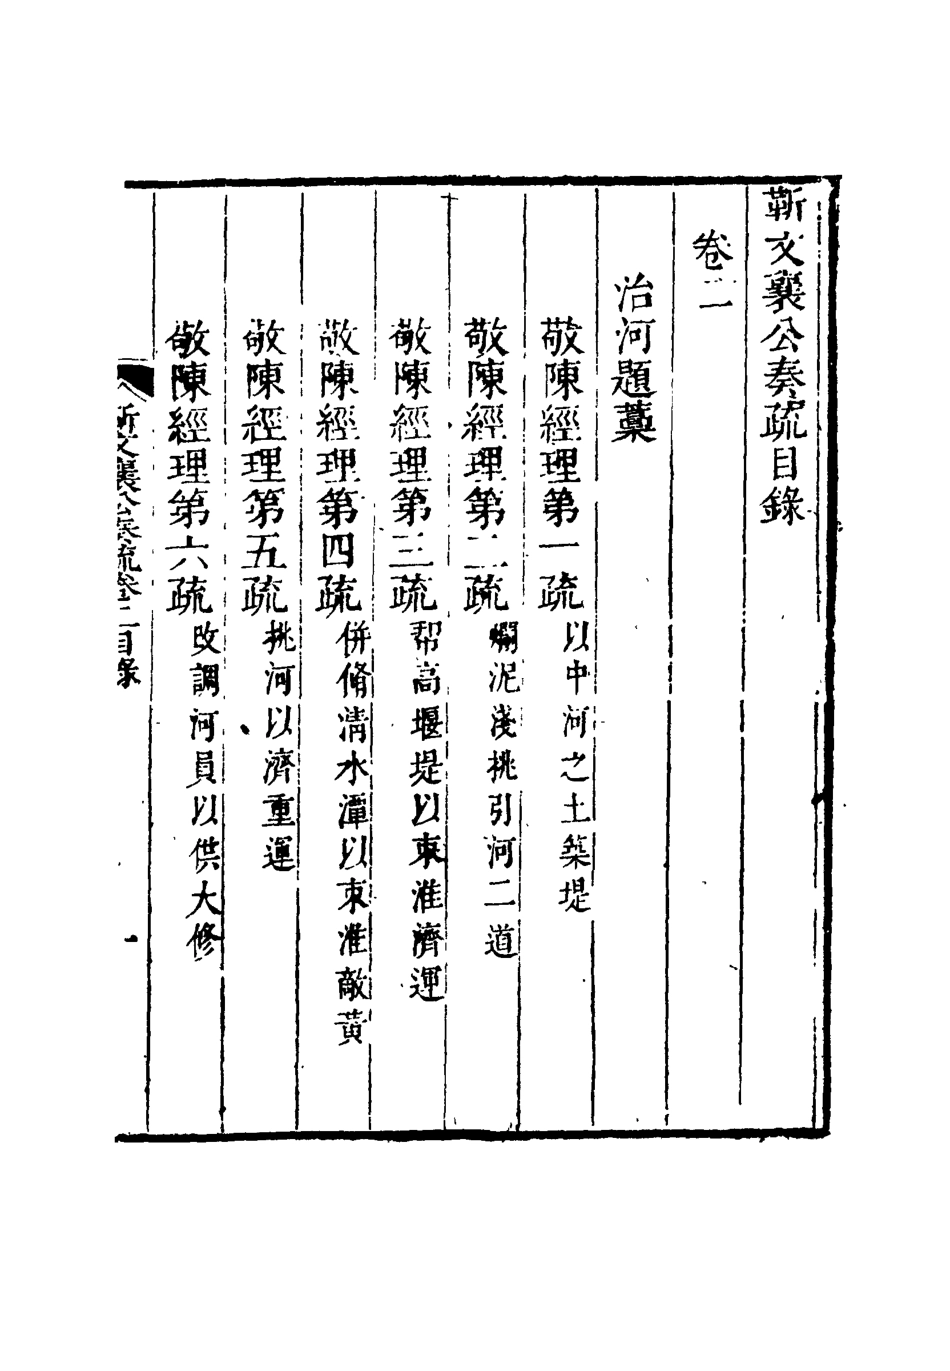 靳文襄公奏疏目錄
卷二
治河題藁
敬陳經理第一疏 以中河之土築堤
敬陳經理第二疏 爛泥淺挑引河二道
敬陳經理第三疏 帮高堰堤以束淮濟運
敬陳經理第四疏 併脩清水潭以束淮敵黃
敬陳經理第五疏 挑河以濟重運
敬陳經理第六疏 改調河員以供大修
靳文襄公奏疏卷二目錄 一